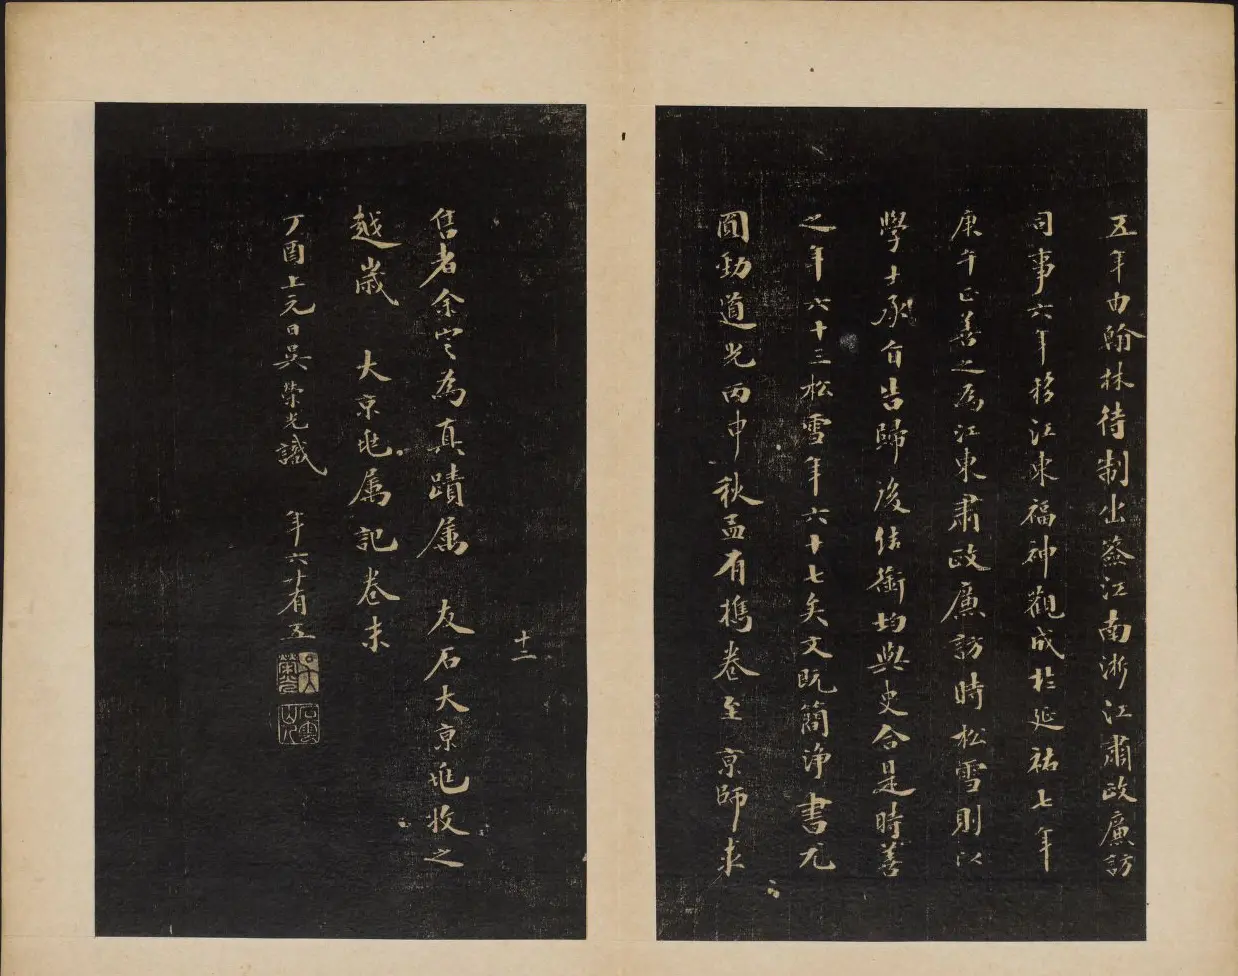 五年由翰林待制出簽江南浙江肅政廉訪
司事六年移江東福神觀成於延祐七年
庚午正善之為江東肅政廉訪時松雪則以
學士承旨告歸後結銜均與史合是時善
之年六十三松雪年六十七矣文既簡淨書尤
圓勁道光丙申秋孟有攜卷至京師求
十二
售者余定為真蹟屬 友石大京兆收之
越歲 大京兆属記卷末
丁酉上元日吳榮光識 年六十有五